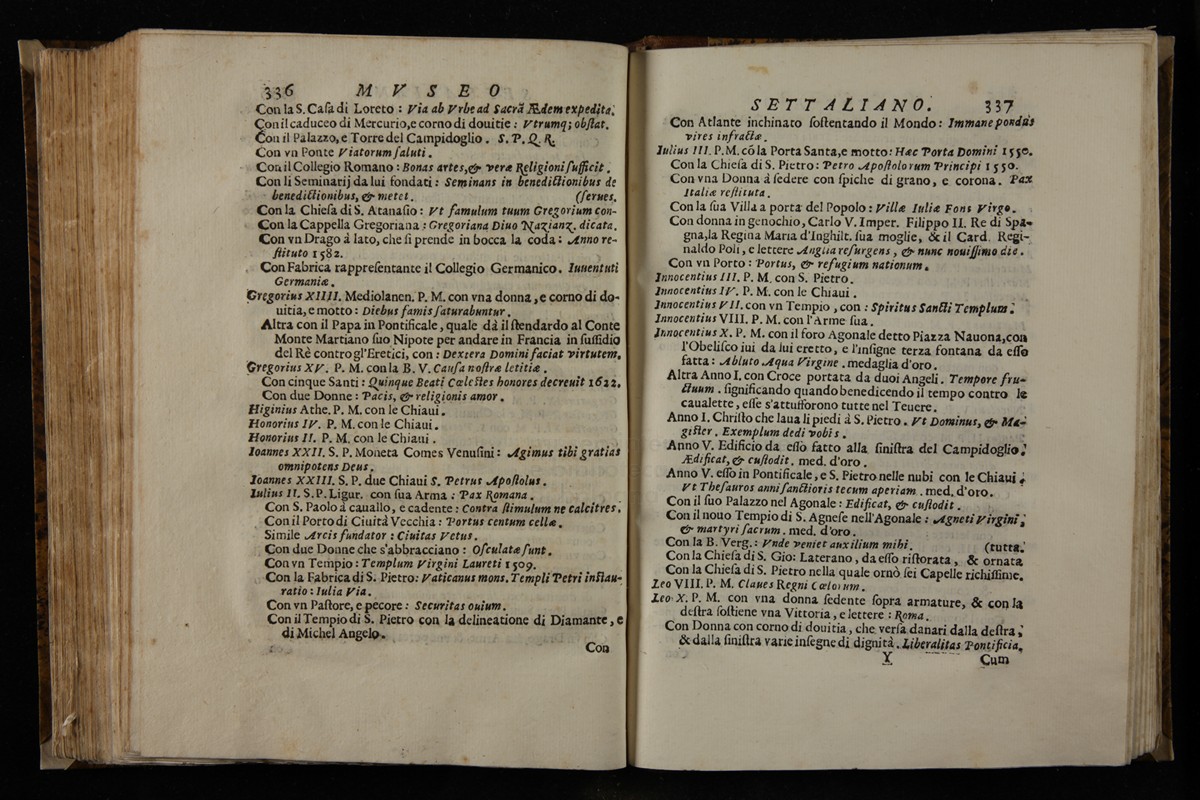 336 MVSEO
Con la S. Caſa di Loreto : Via ab Vrbe ad Sacrã Ædem expedita.
Con il caduceo di Mercurio, e corno di douitie : Vtrumq; obſtat.
Con il Palazzo, e Torre del Campidoglio . S. P. Q. R.
Con vn Ponte Viatorum ſaluti .
Con il Collegio Romano : Bonas artes, & veræ Religioni ſufficit .
Con li Seminarij da lui fondati : Seminans in benedictionibus de
benedictionibus, & metet . (ſerues.
Con la Chieſa di S. Atanaſio : Vt famulum tuum Gregorium con-
Con la Cappella Gregoriana : Gregoriana Diuo Nazianz. dicata.
Con vn Drago à lato, che ſi prende in bocca la coda : Anno re-
ſtituto 1582.
Con Fabrica rappreſentante il Collegio Germanico. Iuuentuti
Germaniæ .
Gregorius XIIII. Mediolanen. P. M. con vna donna , e corno di do-
uitia, e motto : Diebus famis ſaturabuntur .
Altra con il Papa in Pontificale, quale dà il ſtendardo al Conte
Monte Martiano ſuo Nipote per andare in Francia in ſuſſidio
del Rè contro gl'Eretici, con : Dextera Domini faciat virtutem.
Gregorius XV. P. M. con la B. V. Cauſa noſtræ letitiæ .
Con cinque Santi : Quinque Beati Cœleſtes honores decreuit 1622.
Con due Donne : Pacis, & religionis amor .
Higinius Athe. P. M. con le Chiaui .
Honorius IV. P. M. con le Chiaui .
Honorius II. P. M. con le Chiaui .
Ioannes XXII. S. P. Moneta Comes Venuſini : Agimus tibi gratias
omnipotens Deus .
Ioannes XXIII. S. P. due Chiaui S. Petrus Apoſtolus .
Iulius II. S. P. Ligur. con ſua Arma : Pax Romana .
Con S. Paolo à cauallo, e cadente : Contra ſtimulum ne calcitres.
Con il Porto di Ciuità Vecchia : Portus centum cellæ .
Simile Arcis fundator : Ciuitas Vetus .
Con due Donne che s'abbracciano : Oſculatæ ſunt .
Con vn Tempio : Templum Virgini Laureti 1509.
Con la Fabrica di S. Pietro: Vaticanus mons. Templi Petri inſtau-
ratio : Iulia Via .
Con vn Paſtore, e pecore : Securitas ouium .
Con il Tempio di S. Pietro con la delineatione di Diamante , e
di Michel Angelo.
Con
SETTALIANO. 337
Con Atlante inchinato ſoſtentando il Mondo : Immane pondus
vires infractæ .
Iulius III. P. M. cõ la Porta Santa, e motto : Hæc Porta Domini 1550.
Con la Chieſa di S. Pietro : Petro Apoſtolorum Principi 1550.
Con vna Donna à ſedere con ſpiche di grano, e corona. Pax
Italiæ reſtituta .
Con la ſua Villa a porta del Popolo : Villæ Iuliæ Fons Virgo .
Con donna in genochio, Carlo V. Imper. Filippo II. Re di Spa-
gna, la Regina Maria d'Inghilt. ſua moglie, & il Card. Regi-
naldo Poli, e lettere Anglia reſurgens , & nunc nouiſſimo die .
Con vn Porto : Portus, & refugium nationum .
Innocentius III. P. M. con S. Pietro .
Innocentius IV. P. M. con le Chiaui .
Innocentius VII. con vn Tempio , con : Spiritus Sancti Templum .
Innocentius VIII. P. M. con l'Arme ſua .
Innocentius X. P. M. con il foro Agonale detto Piazza Nauona, con
l'Obeliſco iui da lui eretto, e l'inſigne terza fontana da eſſo
fatta : Abluto Aqua Virgine . medaglia d'oro .
Altra Anno I. con Croce portata da duoi Angeli . Tempore fru-
ctuum . ſignificando quando benedicendo il tempo contro le
caualette , eſſe s'attufforono tutte nel Teuere.
Anno I. Chriſto che laua li piedi à S. Pietro . Vt Dominus, & Ma-
giſter . Exemplum dedi vobis .
Anno V. Edificio da eſſo fatto alla ſiniſtra del Campidoglio.
Ædificat, & cuſtodit . med. d'oro .
Anno V. eſſo in Pontificale, e S. Pietro nelle nubi con le Chiaui .
Vt Theſauros anni ſanctioris tecum aperiam . med. d'oro .
Con il ſuo Palazzo nel Agonale : Edificat, & cuſtodit .
Con il nouo Tempio di S. Agneſe nell'Agonale : Agneti Virgini,
& martyri ſacrum . med. d'oro .
Con la B. Verg. : Vnde veniet auxilium mihi . (tutta.
Con la Chieſa di S. Gio: Laterano , da eſſo riſtorata , & ornata
Con la Chieſa di S. Pietro nella quale ornò ſei Capelle richiſſime.
Leo VIII. P. M. Claues Regni Cælorum .
Leo X. P. M. con vna donna ſedente ſopra armature, & con la
deſtra ſoſtiene vna Vittoria, e lettere : Roma .
Con Donna con corno di douitia , che verſa danari dalla deſtra ,
& dalla ſiniſtra varie inſegne di dignità . Liberalitas Pontificia.
Y Cum